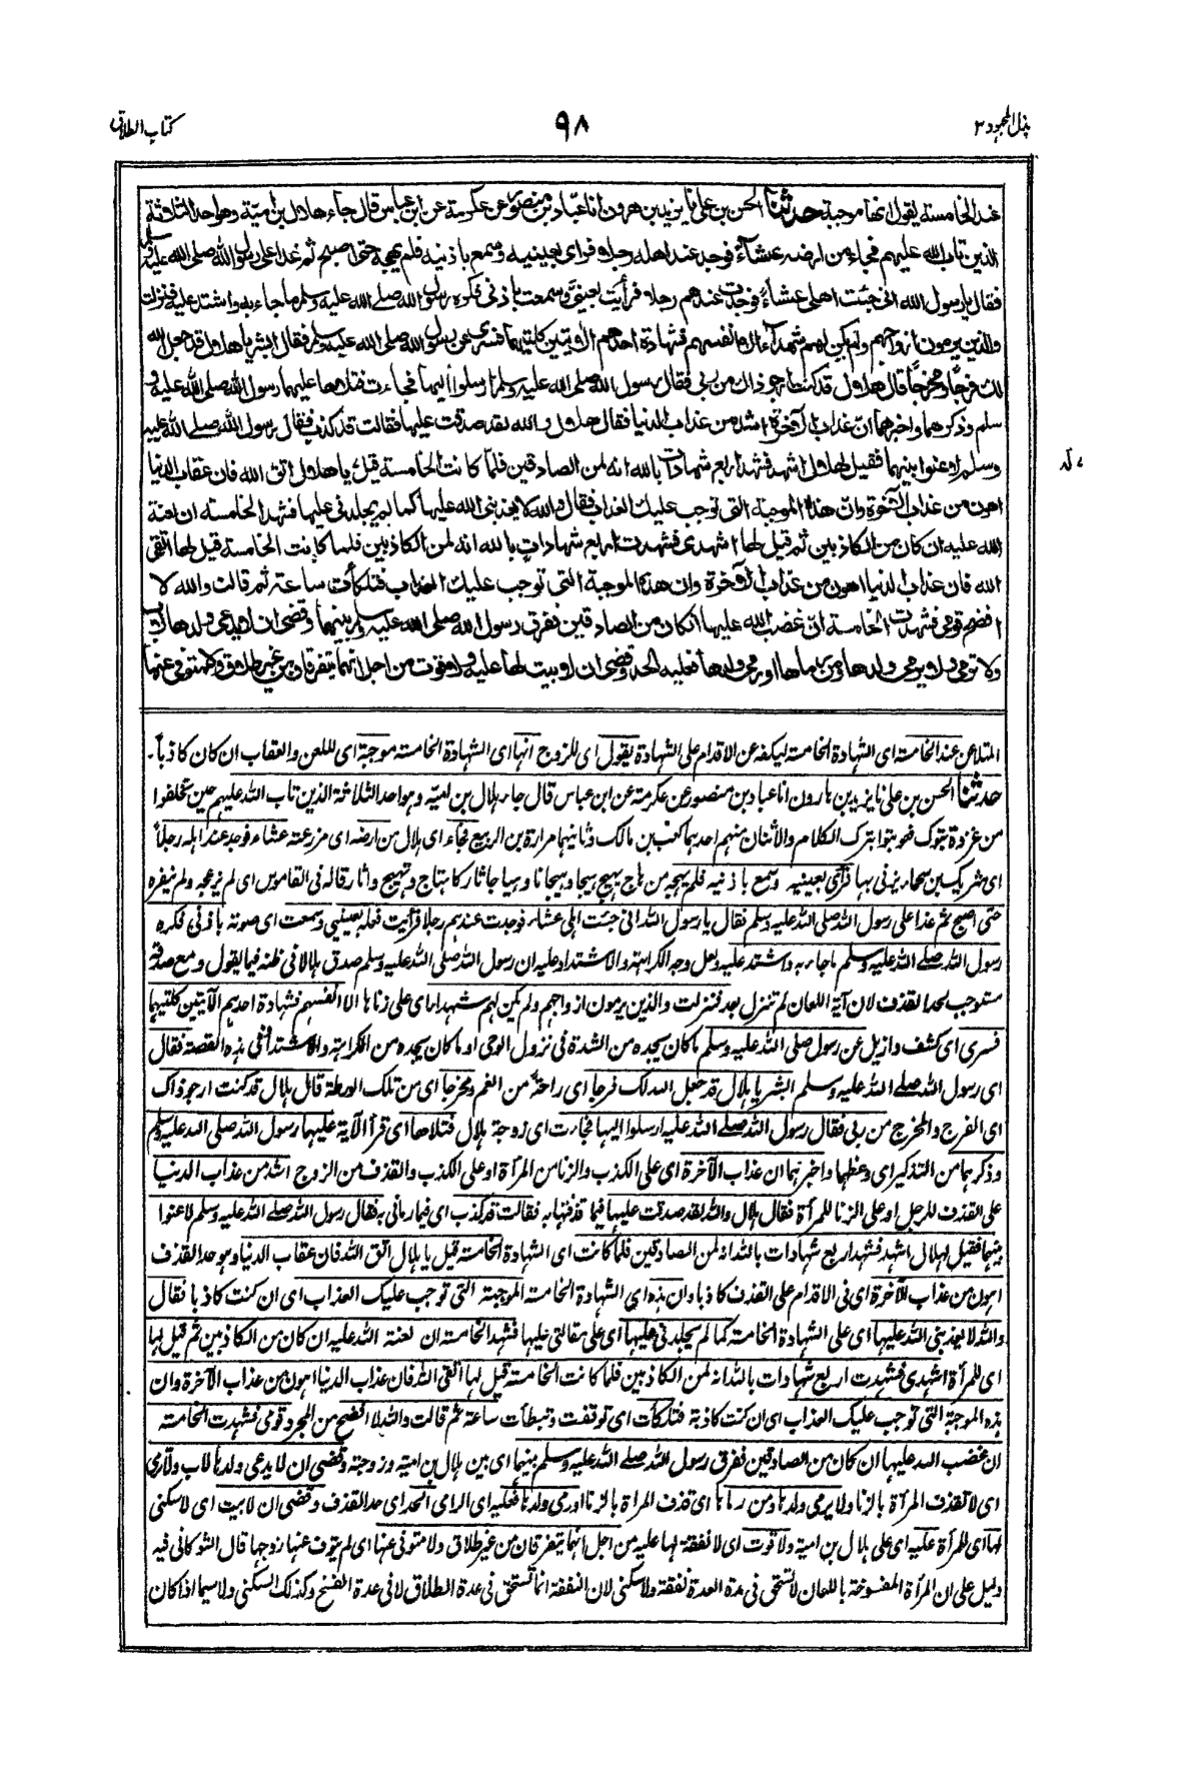 بذل المجهود ٣
٩٨
كتاب الطلاق
عند الخامسة يقول انها موجبة حدثنا الحسن بن علي نا يزيد بن هرون انا عباد بن منصور عن عكرمة عن ابن عباس قال جاء هلال بن امية وهو احد الثلاثة
الذين تاب الله عليهم فجاء من ارضه عشاءً فوجد عند اهله رجلا فراى بعينيه وسمع باذنيه فلم يهجه حتى اصبح ثم غدا على رسول الله صلى الله عليه وسلم
فقال يا رسول الله انى جئت اهلى عشاءً فوجدت عندهم رجلا فرأيت بعينيَّ وسمعت باذنى فكره رسول الله صلى الله عليه وسلم ما جاء به واشتد عليه فنزلت
والذين يرمون ازواجهم ولم يكن لهم شهداء الا انفسهم فشهادة احدهم الآيتين كلتيهما فسرى عن رسول الله صلى الله عليه وسلم فقال ابشر يا هلال قد جعل الله
لك فرجًا ومخرجًا قال هلال قد كنت ارجو ذاك من ربى فقال رسول الله صلى الله عليه وسلم ارسلوا اليها فجاءت فتلاها عليهما رسول الله صلى الله عليه و
سلم وذكرهما واخبرهما ان عذاب الآخرة اشد من عذاب الدنيا فقال هلال والله لقد صدقت عليها فقالت قد كذب فقال رسول الله صلى الله عليه
وسلم لاعنوا بينهما فقيل لهلال اشهد فشهد اربع شهادات بالله انه لمن الصادقين فلما كانت الخامسة قيل يا هلال اتق الله فان عقاب الدنيا
اهون من عذاب الآخرة وان هذه الموجبة التى توجب عليك العذاب فقال والله لا يعذبنى الله عليها كما لم يجلدنى عليها فشهد الخامسة ان لعنة
الله عليه ان كان من الكاذبين ثم قيل لها اشهدى فشهدت اربع شهادات بالله انه لمن الكاذبين فلما كانت الخامسة قيل لها اتقى
الله فان عذاب الدنيا اهون من عذاب الآخرة وان هذه الموجبة التى توجب عليك العذاب فتلكأت ساعة ثم قالت والله لا
افضح قومى فشهدت الخامسة ان غضب الله عليها ان كان من الصادقين ففرق رسول الله صلى الله عليه وسلم بينهما وقضى ان لا يدعى ولدها لاب
ولا ترمى ولا يرمى ولدها ومن رماها او رمى ولدها فعليه الحد وقضى ان لا بيت لها عليه ولا قوت من اجل انهما يتفرقان من غير طلاق ولا متوفى عنها
المتلاعن عند الخامسة اى الشهادة الخامسة ليكفه عن الاقدام على الشهادة يقول اى للزوج انها اى الشهادة الخامسة موجبة اى للعن والعقاب ان كان كاذباً۔
حدثنا الحسن بن على نا يزيد بن هارون انا عباد بن منصور عن عكرمة عن ابن عباس قال جاء هلال بن امية وهو احد الثلاثة الذين تاب الله عليهم حين تخلفوا
من غزوة تبوك فعوتبوا بترك الكلام والاثنان منهم احدهما كعب بن مالك وثانيهما مرارة بن الربيع فجاء اى هلال من ارضه اى مزرعته عشاء فوجد عند اهله رجلاً
اى شريك بن سحماء يزنى بها فرأى بعينيه وسمع باذنيه فلم يهجه من هاج يهيج هيجا وهيجانا وهياجا ثار كاهتاج وتهيج واثار قاله فى القاموس اى لم يزعجه ولم ينفره
حتى اصبح ثم غدا على رسول الله صلى الله عليه وسلم فقال يا رسول الله انى جئت اهلى عشاء فوجدت عندهم رجلا فرأيت فعله بعينيى وسمعت اى صوته باذنى فكره
رسول الله صلى الله عليه وسلم ما جاء به واشتد عليه ولعل وجه الكراهة والاشتداد عليه ان رسول الله صلى الله عليه وسلم صدق هلالا فى ظنه فيما يقول ومع صدقه
مستوجب لحد القذف لان آية اللعان لم تنزل بعد فنزلت والذين يرمون ازواجهم ولم يكن لهم شهداء اى على زناها الا انفسهم فشهادة احدهم الآيتين كلتيهما
فسرى اى كشف وازيل عن رسول الله صلى الله عليه وسلم ما كان يجده من الشدة فى نزول الوحى او ما كان يجده من الكراهة والاشتداد فى هذه القصة فقال
اى رسول الله صلى الله عليه وسلم ابشر يا هلال قد جعل الله لك فرجا اى راحة من الغم ومخرجا اى من تلك الورطة قال هلال قد كنت ارجو ذاك
اى الفرج والمخرج من ربى فقال رسول الله صلى الله عليه ارسلوا اليها فجاءت اى زوجة هلال فتلاها اى قرأ الآية عليهما رسول الله صلى الله عليه وسلم
وذكرهما من التذكير اى وعظهما واخبرهما ان عذاب الآخرة اى على الكذب والزنا من المرأة او على الكذب والقذف من الزوج اشد من عذاب الدنيا
على القذف للرجل او على الزنا للمرأة فقال هلال والله لقد صدقت عليها فيما قذفتها به فقالت قد كذب اى فيما رمانى به فقال رسول الله صلى الله عليه وسلم لاعنوا
بينهما فقيل لهلال اشهد فشهد اربع شهادات بالله انه لمن الصادقين فلما كانت اى الشهادة الخامسة قيل يا هلال اتق الله فان عقاب الدنيا وهو حد القذف
اهون من عذاب الآخرة اى فى الاقدام على القذف كاذبا وان هذه اى الشهادة الخامسة الموجبة التى توجب عليك العذاب اى ان كنت كاذبا فقال
والله لا يعذبنى الله عليها اى على الشهادة الخامسة كما لم يجلدنى عليها اى على مقالتى عليها فشهد الخامسة ان لعنة الله عليه ان كان من الكاذبين ثم قيل لها
اى للمرأة اشهدى فشهدت اربع شهادات بالله انه لمن الكاذبين فلما كانت الخامسة قيل لها اتقى الله فان عذاب الدنيا اهون من عذاب الآخرة وان
هذه الموجبة التى توجب عليك العذاب اى ان كنت كاذبة فتلكأت اى توقفت وتبطأت ساعة ثم قالت والله لا افضح من المجرد قومى فشهدت الخامسة
ان غضب الله عليها ان كان من الصادقين ففرق رسول الله صلى الله عليه وسلم بينهما اى بين هلال بن امية وزوجته وقضى ان لا يدعى ولدها لاب ولا ترمى
اى لا تقذف المرأة بالزنا ولا يرمى ولدها ومن رماها اى قذف المراة بالزنا او رمى ولدها فعليه اى الرامى الحد اى حد القذف وقضى ان لا بيت اى لا سكنى
لها اى للمرأة عليه اى على هلال بن امية ولا قوت اى لا نفقة لها عليه من اجل انهما يتفرقان من غير طلاق ولا متوفى عنها اى لم يتوف عنها زوجها قال الشوكانى فيه
دليل على ان المرأة المفسوخة باللعان لا تستحق فى مدة العدة نفقة ولا سكنى لان النفقة انما تستحق فى عدة الطلاق لا فى عدة الفسخ وكذلك السكنى ولا سيما اذا كان